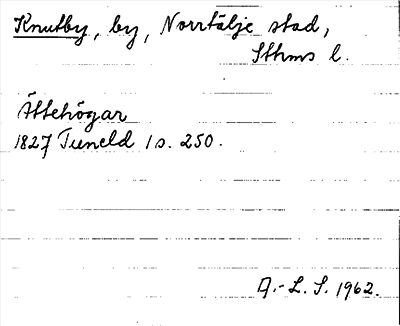 Knutby, by, Norrtälje stad,
Sthms l.
Ättehögar
1827 Tuneld 1 s. 250.
A.-L. S. 1962.